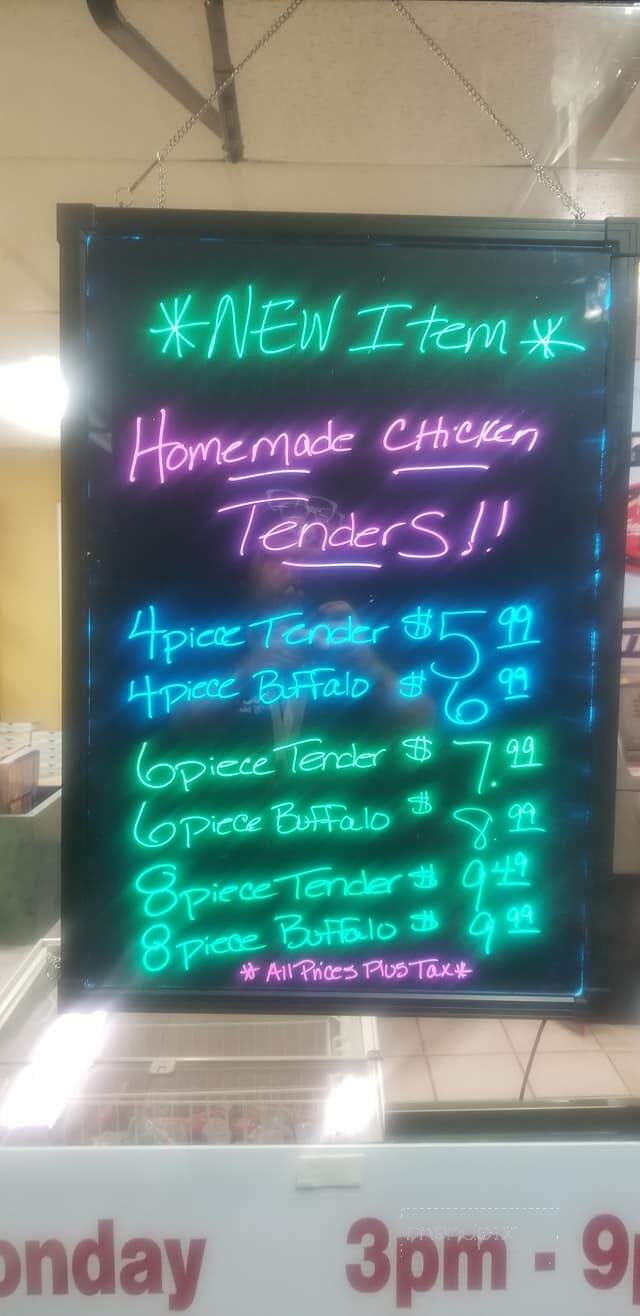 *NEW Item*
Homemade Chicken
Tenders!!
4piece Tender $5.99
4piece Buffalo $6.99
6piece Tender $7.99
6piece Buffalo $8.99
8piece Tender $9.49
8piece Buffalo $9.99
*All Prices Plus Tax*
onday 3pm - 9p